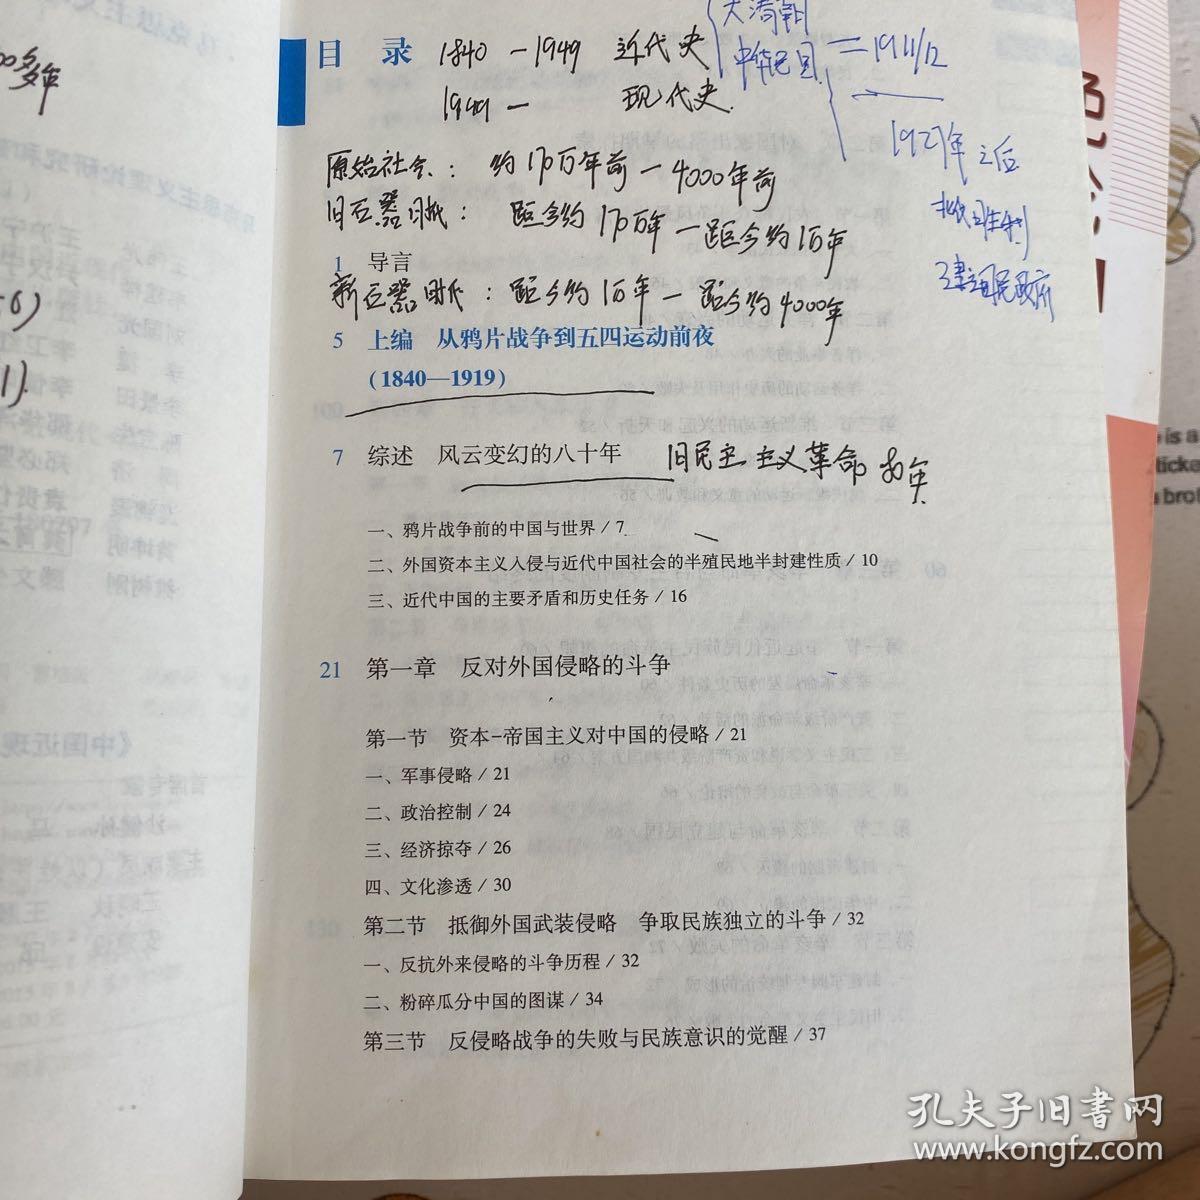 目 录
1840 — 1949 近代史
1949 — 现代史
大清朝
中华民国 = 1911/12
1927年之后
建立国民政府
原始社会：约170万年前 — 4000年前
旧石器时代：距今约170万年 — 距今约1万年
1 导言
新石器时代：距今约1万年 — 距今约4000年
5 上编 从鸦片战争到五四运动前夜
(1840—1919)
7 综述 风云变幻的八十年 旧民主主义革命
一、鸦片战争前的中国与世界 / 7
二、外国资本主义入侵与近代中国社会的半殖民地半封建性质 / 10
三、近代中国的主要矛盾和历史任务 / 16
21 第一章 反对外国侵略的斗争
第一节 资本-帝国主义对中国的侵略 / 21
一、军事侵略 / 21
二、政治控制 / 24
三、经济掠夺 / 26
四、文化渗透 / 30
第二节 抵御外国武装侵略 争取民族独立的斗争 / 32
一、反抗外来侵略的斗争历程 / 32
二、粉碎瓜分中国的图谋 / 34
第三节 反侵略战争的失败与民族意识的觉醒 / 37
孔夫子旧书网
www.kongfz.com